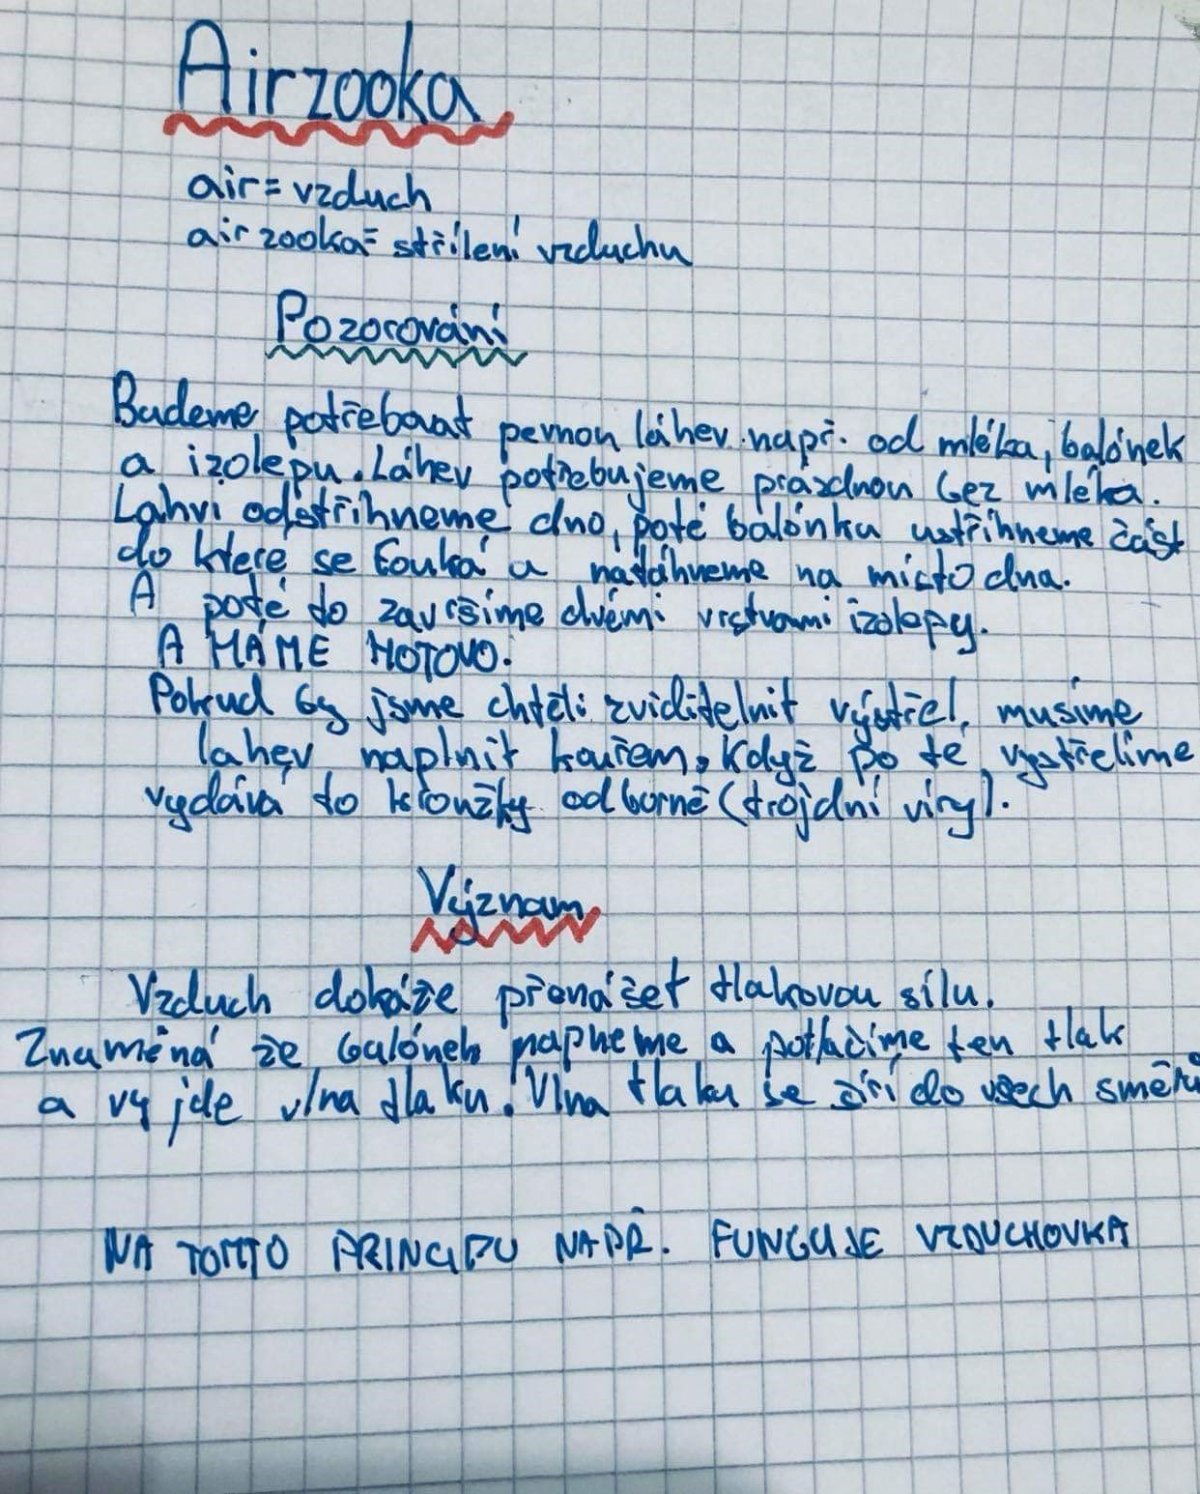 Airzooka
air = vzduch
airzooka = střílení vzduchu
Pozorování
Budeme potřebovat pevnou láhev např. od mléka, balónek
a izolepu. Láhev potřebujeme prázdnou bez mléka.
Lahvi odstřihneme dno, poté balónku ustřihneme část
do ktere se fouká a natáhneme na místo dna.
A poté to završíme dvěmi vrstvami izolepy.
A MÁME HOTOVO.
Pokud by jsme chtěli zviditelnit výstřel, musíme
lahev naplnit kouřem. Když po té vystřelíme
vydává to kroužky odborně (trojdní víry).
Význam
Vzduch dokáže přenášet tlakovou sílu.
Znaměná že balónek napneme a potlačíme ten tlak
a vyjde vlna tlaku. Vlna tlaku se šíří do všech směrů
NA TOMTO PRINCIPU NAPŘ. FUNGUJE VZDUCHOVKA